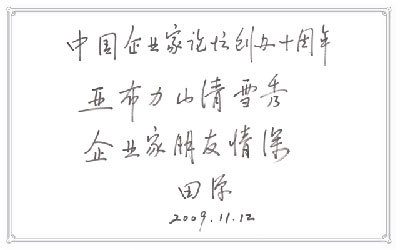 中国企业家论坛创办十周年
亚布力山清雪秀
企业家朋友情深
田源
2009.11.12